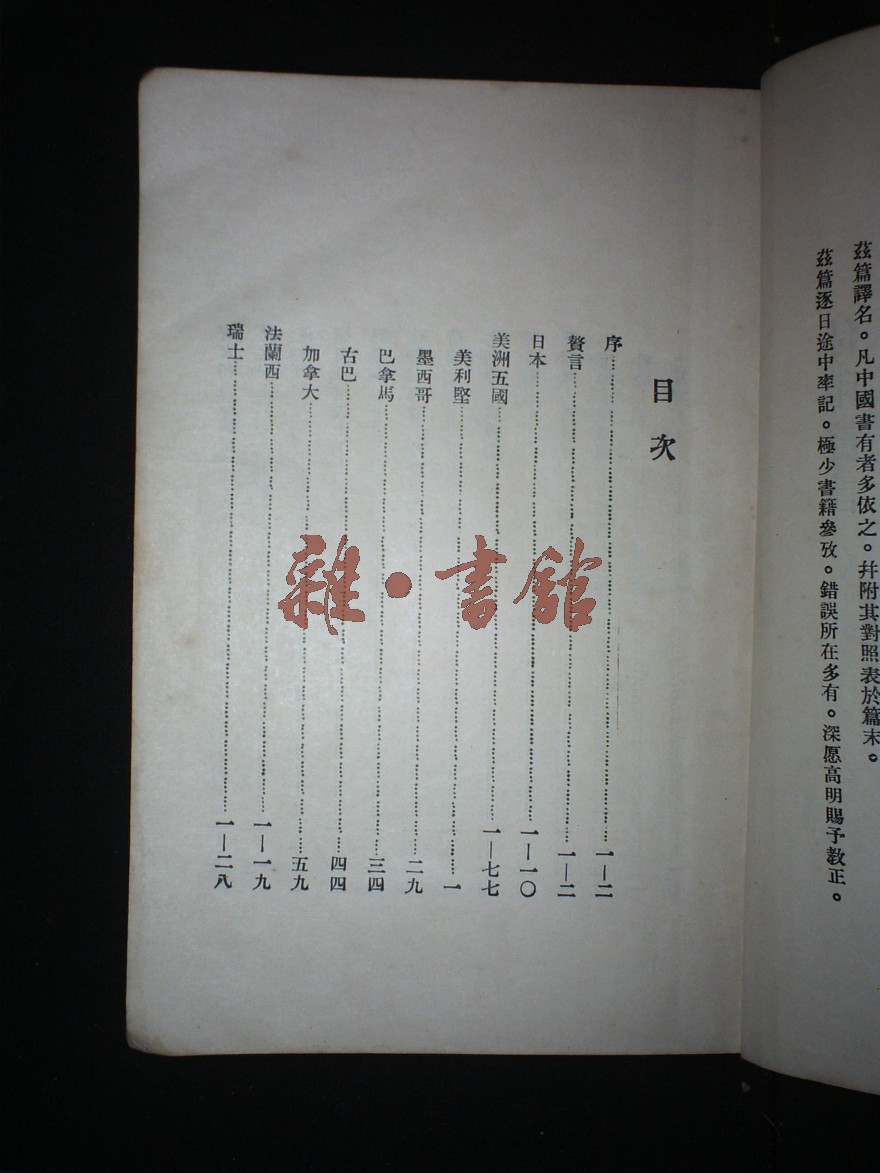 茲篇譯名。凡中國書有者多依之。幷附其對照表於篇末。
茲篇逐日途中率記。極少書籍參攷。錯誤所在多有。深愿高明賜予敎正。
目次
序……一—二
贅言……一—二
日本……一—一〇
美洲五國……一—七七
美利堅……一
墨西哥……二九
巴拿馬……三四
古巴……四四
加拿大……五九
法蘭西……一—一九
瑞士……一—二八
雜·書館